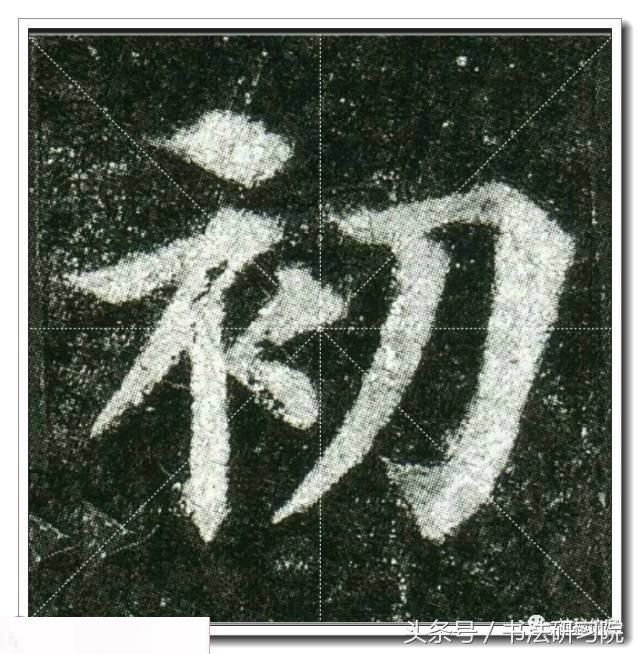 初
头条号 / 书法研习院